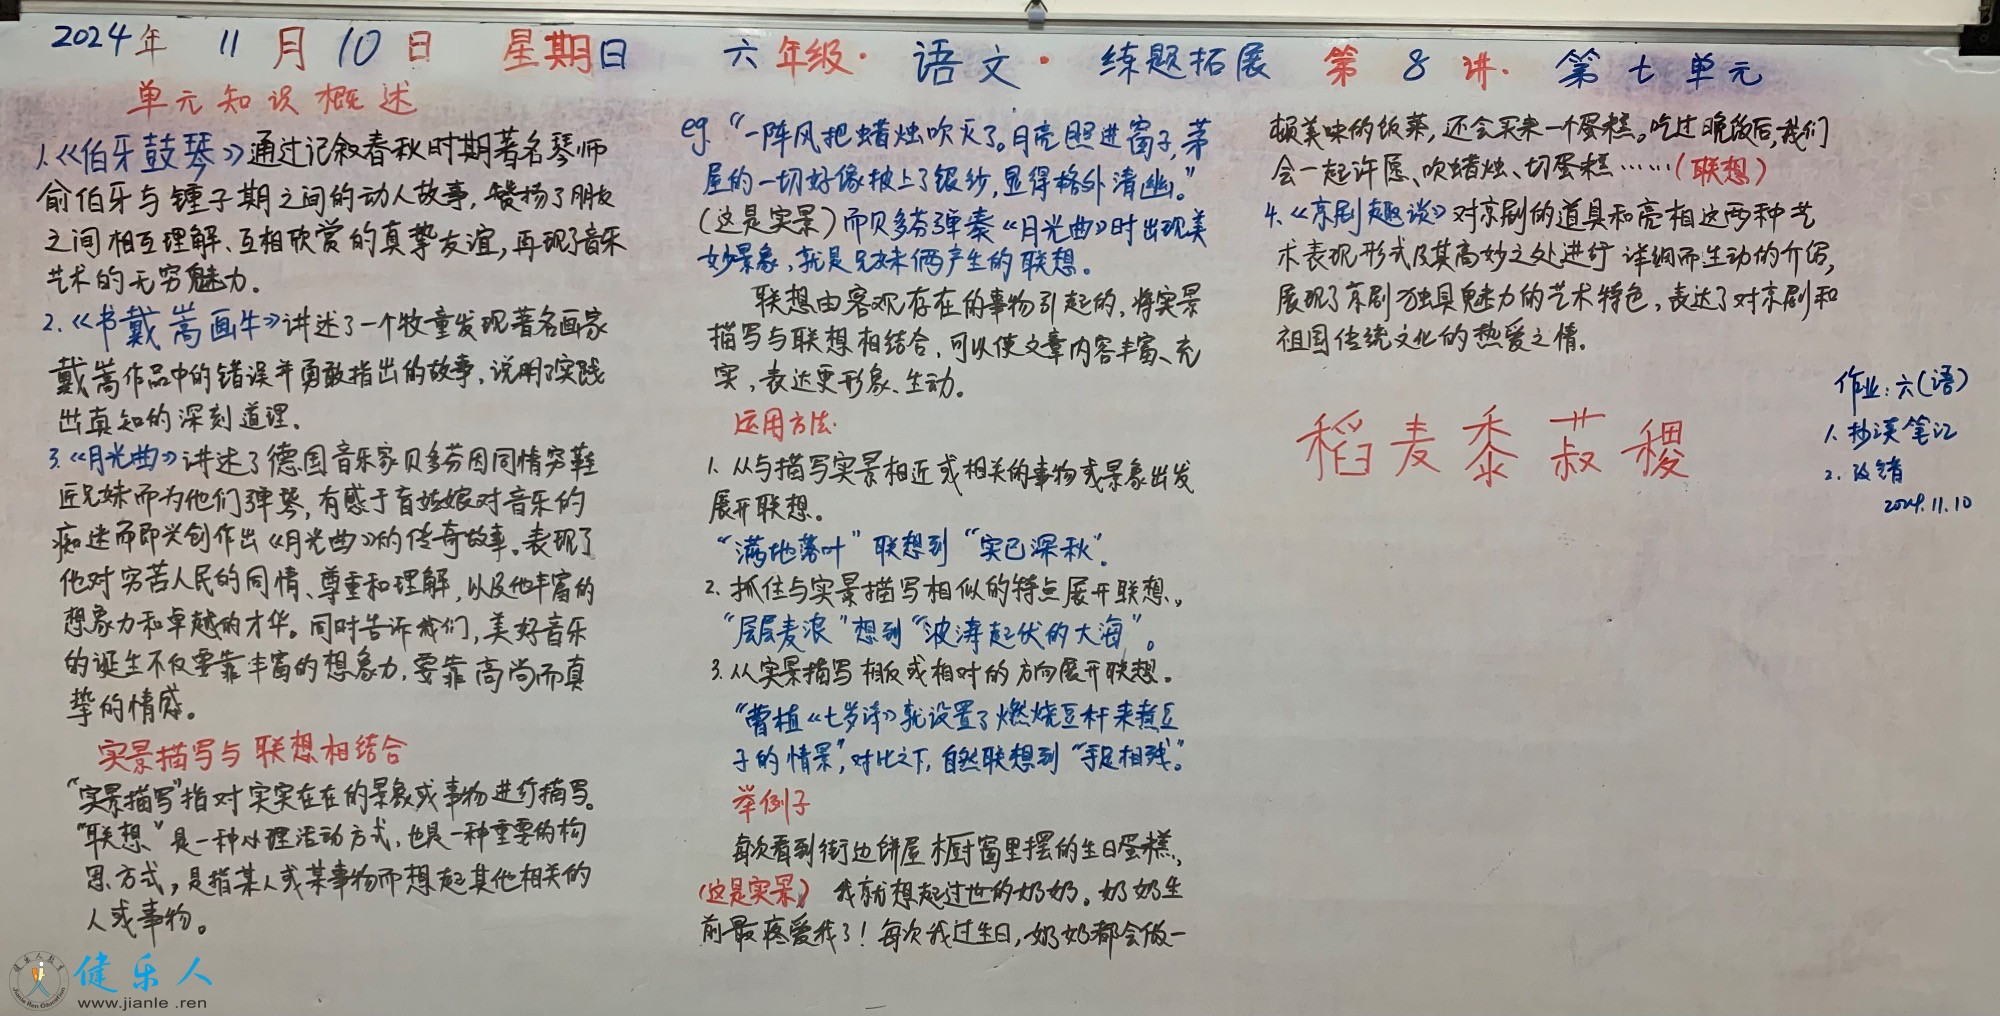 2024年 11月10日 星期日 六年级·语文·练题拓展 第8讲·第七单元
单元知识概述
1.《伯牙鼓琴》通过记叙春秋时期著名琴师
俞伯牙与锺子期之间的动人故事，赞扬了朋友
之间相互理解、互相欣赏的真挚友谊，再现了音乐
艺术的无穷魅力。
2.《书戴嵩画牛》讲述了一个牧童发现著名画家
戴嵩作品中的错误并勇敢指出的故事，说明了实践
出真知的深刻道理。
3.《月光曲》讲述了德国音乐家贝多芬因同情穷鞋
匠兄妹而为他们弹琴，有感于盲姑娘对音乐的
痴迷而即兴创作出《月光曲》的传奇故事。表现了
他对穷苦人民的同情、尊重和理解，以及他丰富的
想象力和卓越的才华。同时告诉我们，美好音乐
的诞生不仅要靠丰富的想象力，要靠高尚而真
挚的情感。
实景描写与联想相结合
“实景描写”指对实实在在的景象或事物进行描写。
“联想”是一种心理活动方式，也是一种重要的构
思方式，是指某人或某事物而想起其他相关的
人或事物。
eg. “一阵风把蜡烛吹灭了。月亮照进窗子，茅
屋的一切好像披上了银纱，显得格外清幽。”
（这是实景）而贝多芬弹奏《月光曲》时出现美
妙景象，就是兄妹俩产生的联想。
联想由客观存在的事物引起的，将实景
描写与联想相结合，可以使文章内容丰富、充
实，表达更形象、生动。
运用方法
1. 从与描写实景相近或相关的事物或景象出发
展开联想。
“满地落叶”联想到“实已深秋”。
2. 抓住与实景描写相似的特点展开联想。
“层层麦浪”想到“波涛起伏的大海”。
3. 从实景描写相反或相对的方向展开联想。
“曹植《七步诗》就设置了燃烧豆杆来煮豆
子的情景”，对比之下，自然联想到“手足相残”。
举例子
每次看到街边饼屋橱窗里摆的生日蛋糕，
（这是实景）我就想起过世的奶奶。奶奶生
前最疼爱我了！每次我过生日，奶奶都会做一
顿美味的饭菜，还会买来一个蛋糕。吃过晚饭后，我们
会一起许愿、吹蜡烛、切蛋糕……（联想）
4.《京剧趣谈》对京剧的道具和亮相这两种艺
术表现形式及其高妙之处进行详细而生动的介绍，
展现了京剧独具魅力的艺术特色，表达了对京剧和
祖国传统文化的热爱之情。
稻麦黍菽稷
作业：六（语）
1. 抄读笔记
2. 改错
2024.11.10
健乐人
www.jianle.ren